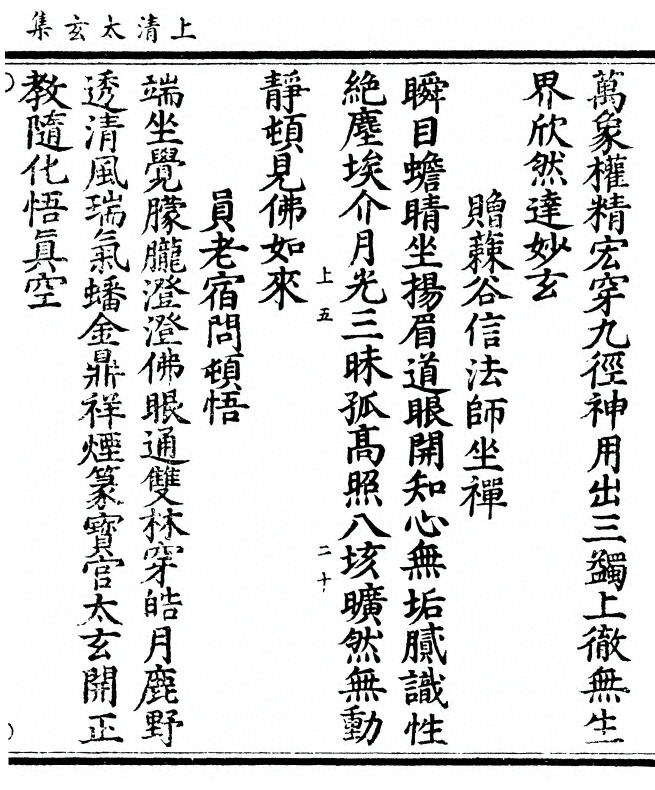 上清太玄集
萬象權精宏穿九徑神用出三蠲上徹無生
界欣然達妙玄
贈蘱谷信法師坐禪
瞬目蟾睛坐揚眉道眼開知心無垢膩識性
絶塵埃介月光三昧孤高照八垓曠然無動
上五
二十
靜頓見佛如來
員老宿問頓悟
端坐覺朦朧澄澄佛眼通雙林穿皓月鹿野
透清風瑞氣蟠金鼎祥煙篆寳宫太玄開正
教隨化悟真空